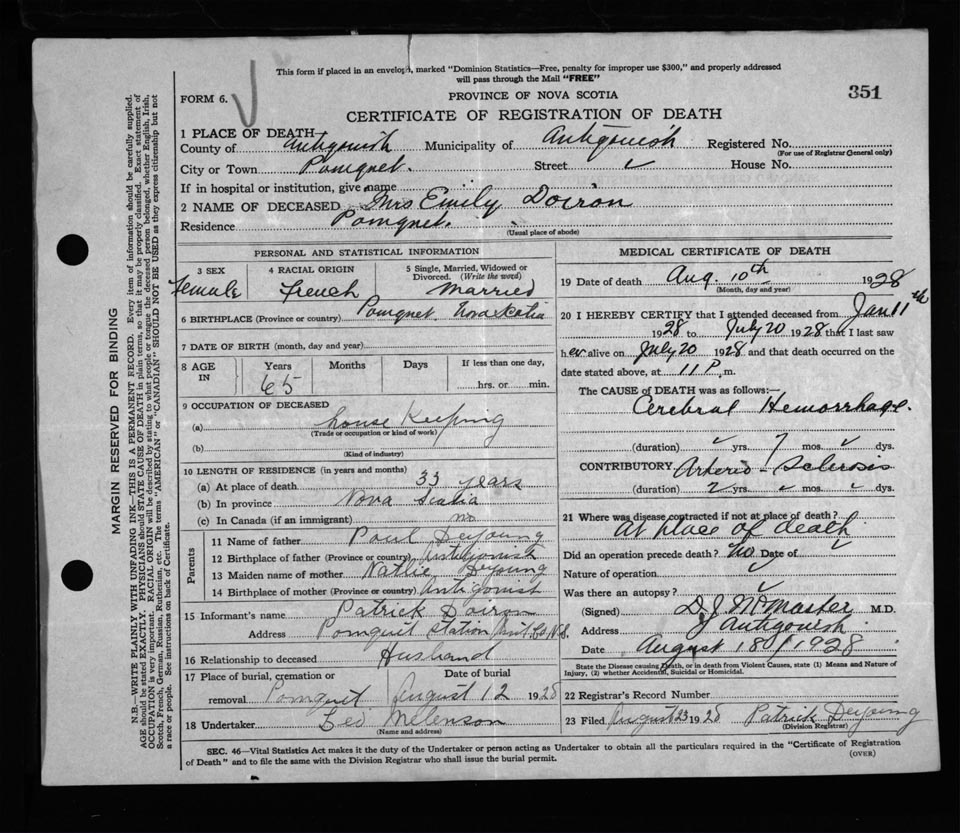 This form if placed in an envelope, marked "Dominion Statistics—Free, penalty for improper use $300," and properly addressed
will pass through the Mail "FREE"
FORM 6.
PROVINCE OF NOVA SCOTIA
351
CERTIFICATE OF REGISTRATION OF DEATH
1 PLACE OF DEATH—
County of Antigonish Municipality of Antigonish Registered No.
(For use of Registrar General only)
City or Town Pomquet. Street House No.
If in hospital or institution, give name
2 NAME OF DECEASED Mrs Emily Doiron
Residence Pomquet.
(Usual place of abode)
PERSONAL AND STATISTICAL INFORMATION
3 SEX 4 RACIAL ORIGIN 5 Single, Married, Widowed or Divorced. (Write the word)
Female French Married
6 BIRTHPLACE (Province or country) Pomquet, Nova Scotia
7 DATE OF BIRTH (month, day and year)
8 AGE IN Years Months Days If less than one day,
65 hrs. or min.
9 OCCUPATION OF DECEASED
(a) House Keeping
(Trade or occupation or kind of work)
(b)
(Kind of industry)
10 LENGTH OF RESIDENCE (in years and months)
(a) At place of death 33 years
(b) In province Nova Scotia
(c) In Canada (if an immigrant) no
Parents
11 Name of father Paul Deyoung
12 Birthplace of father (Province or country) Antigonish
13 Maiden name of mother Natlie Deyoung
14 Birthplace of mother (Province or country) Antigonish
15 Informant's name Patrick Doiron
Address Pomquet Station Ant. Co N.S.
16 Relationship to deceased Husband
17 Place of burial, cremation or removal Pomquet Date of burial August 12 1928
18 Undertaker Leo Melenson
(Name and address)
MEDICAL CERTIFICATE OF DEATH
19 Date of death Aug. 10th 1928
(Month, day and year)
20 I HEREBY CERTIFY that I attended deceased from Jan 11th
1928 to July 20 1928 that I last saw
her alive on July 20 1928 and that death occurred on the
date stated above, at 11 P. m.
The CAUSE OF DEATH was as follows:—
Cerebral Hemorrhage.
(duration) yrs. 7 mos. dys.
CONTRIBUTORY Arterio-Sclerosis
(duration) 2 yrs. mos. dys.
21 Where was disease contracted if not at place of death?
At place of death
Did an operation precede death? No Date of
Nature of operation
Was there an autopsy?
(Signed) D. J. McMaster M.D.
Address Antigonish
Date August 18th/1928
State the Disease causing Death, or in death from Violent Causes, state (1) Means and Nature of
Injury, (2) whether Accidental, Suicidal or Homicidal.
22 Registrar's Record Number
23 Filed August 23 1928 Patrick Deyoung
(Division Registrar)
SEC. 46—Vital Statistics Act makes it the duty of the Undertaker or person acting as Undertaker to obtain all the particulars required in the "Certificate of Registration
of Death" and to file the same with the Division Registrar who shall issue the burial permit.
(OVER)
MARGIN RESERVED FOR BINDING
N.B.—WRITE PLAINLY WITH UNFADING INK—THIS IS A PERMANENT RECORD. Every item of information should be carefully supplied.
AGE should be stated EXACTLY. PHYSICIANS should STATE CAUSE OF DEATH in plain terms, so that it may be properly classified. Exact statement of
OCCUPATION is very important. RACIAL ORIGIN will be described by stating to what people or tongue the deceased person belonged, whether English, Irish,
Scotch, French, German, Russian, Ruthenian, etc. The terms "AMERICAN" or "CANADIAN" SHOULD NOT BE USED as they express citizenship but not
a race or people. See instructions on back of Certificate.